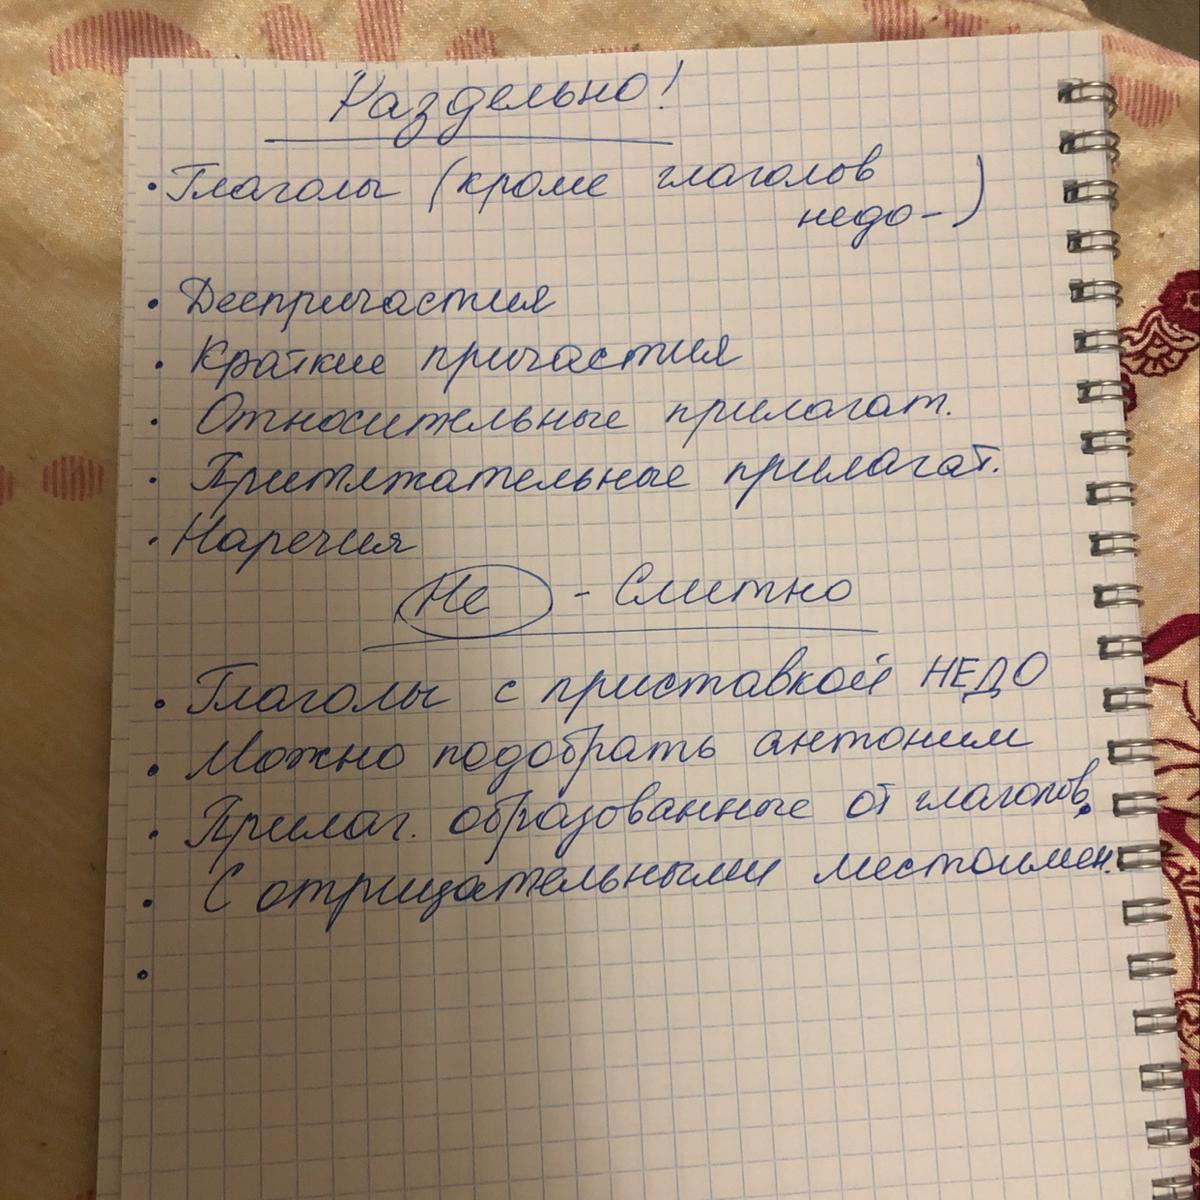 Раздельно!
• Глаголы (кроме глаголов
недо-)
• Деепричастия
• Краткие причастия
• Относительные прилагат.
• Притяжательные прилагат.
• Наречия
Не - Слитно
• Глаголы с приставкой НЕДО
• Можно подобрать антоним
• Прилаг. образованные от глаголов.
• С отрицательными местоимен.
•